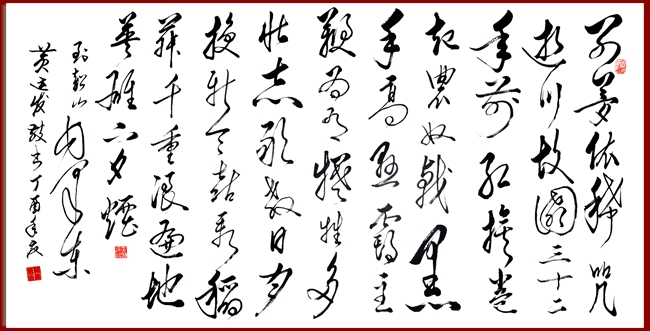 别梦依稀咒
逝川故園三十二
年前红旗卷
起農奴戟黑
手高悬霸主
鞭为有犧牲多
壮志敢教日月
换新天喜看稻
菽千重浪遍地
英雄下夕煙
到韶山 毛泽东
黄 发敬书丁酉年夏